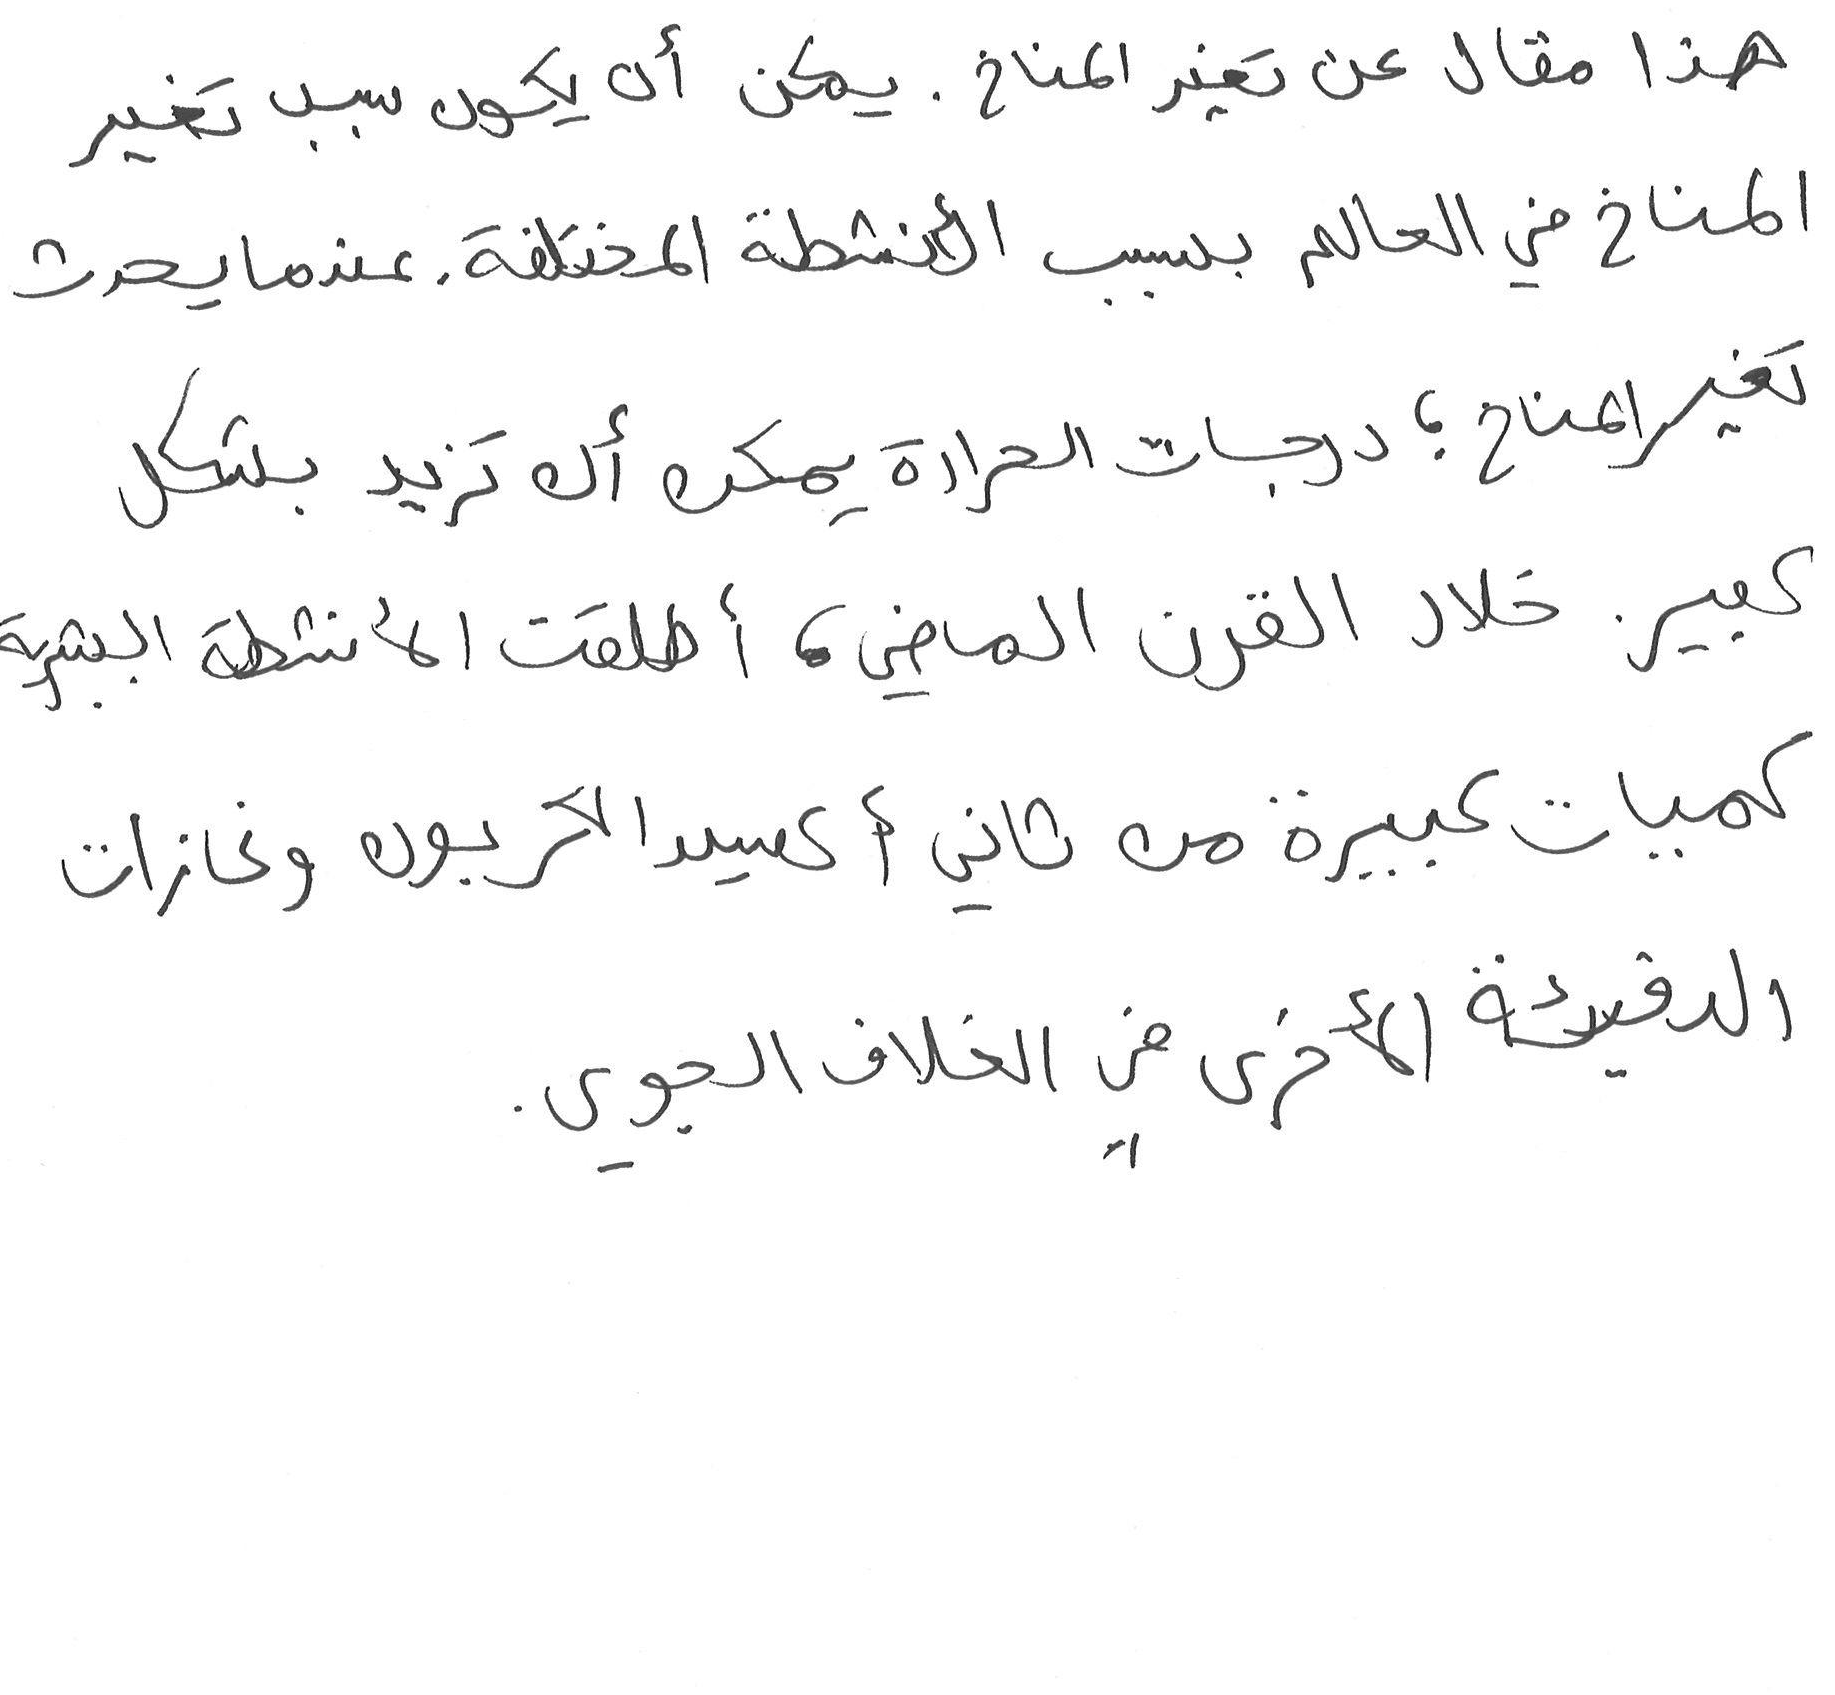 هذا مقال عن تغير المناخ. يمكن أن يكون سبب تغيير
المناخ في العالم بسبب الأنشطة المختلفة. عندما يحدث
تغير المناخ؛ درجات الحرارة يمكن أن تزيد بشكل
كبير. خلال القرن الماضي، أطلقت الأنشطة البشرية
كميات كبيرة من ثاني أكسيد الكربون وغازات
الدفيئة الأخرى في الغلاف الجوي.